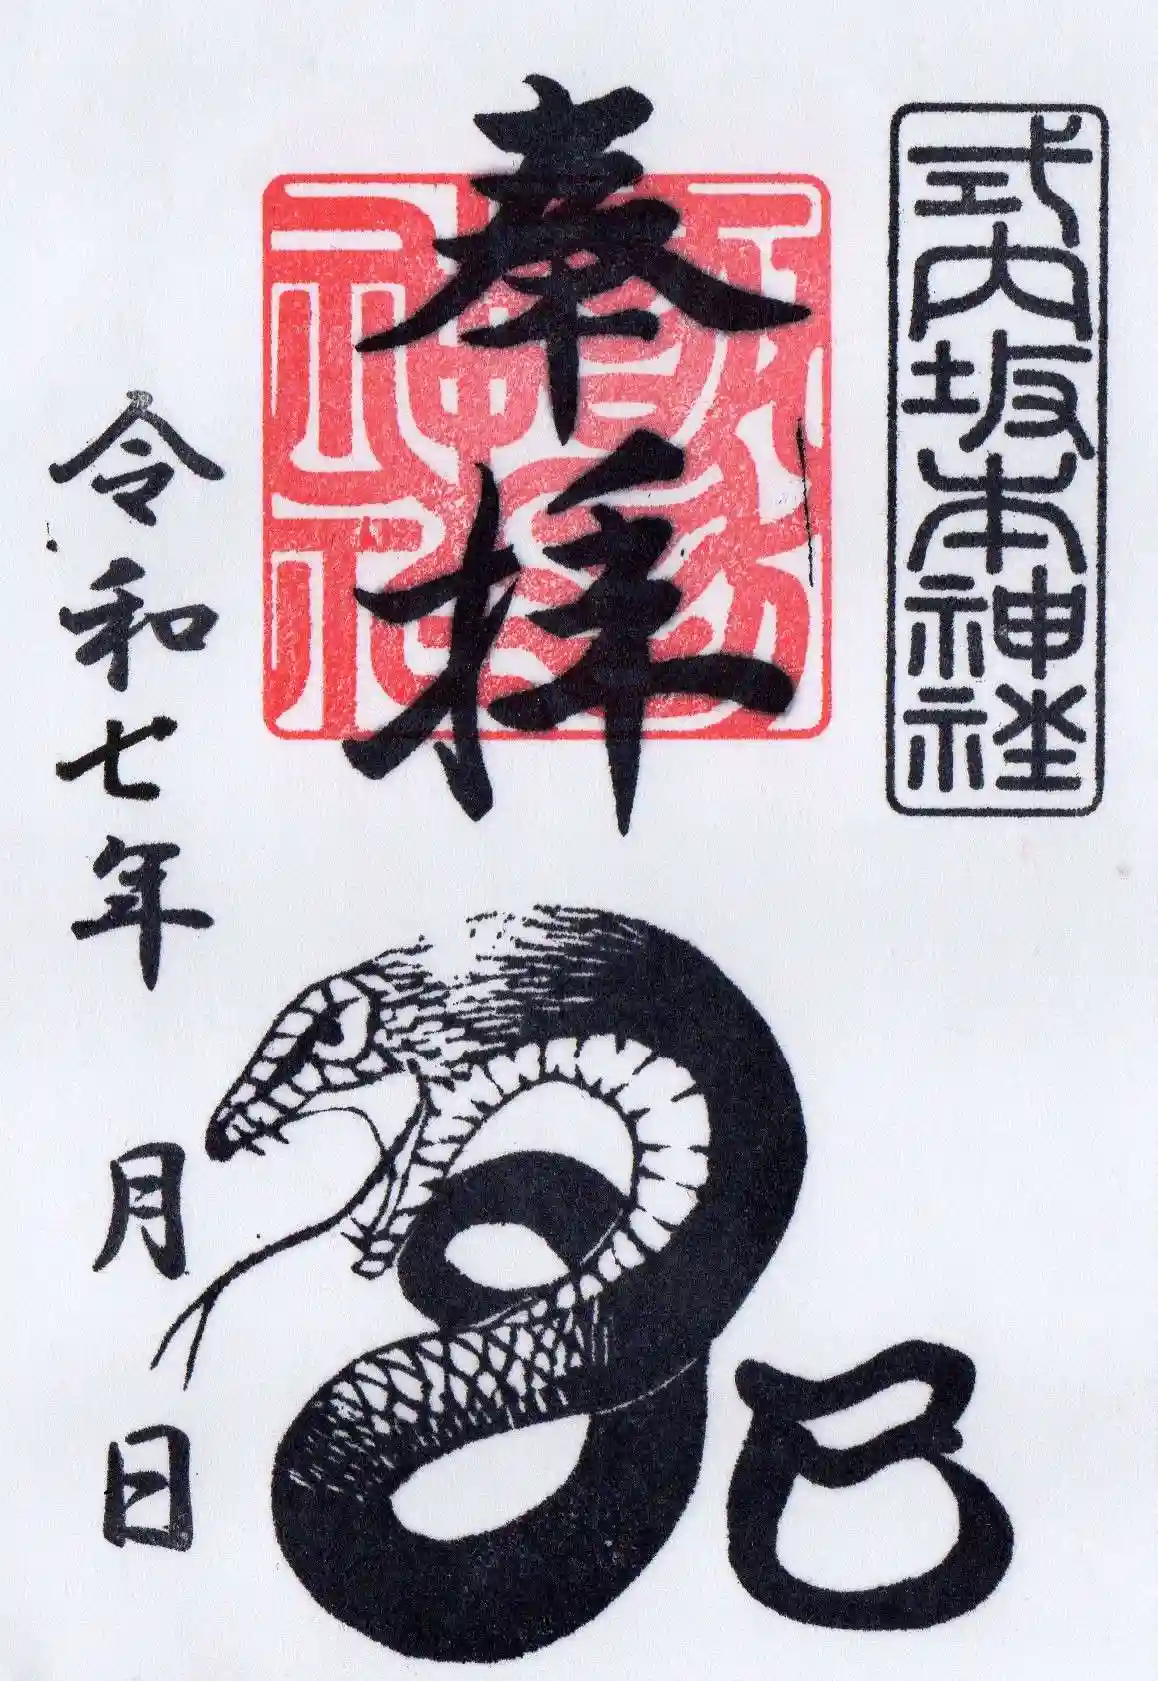 式内坂本神社
奉拝
令和七年
月
日
巳